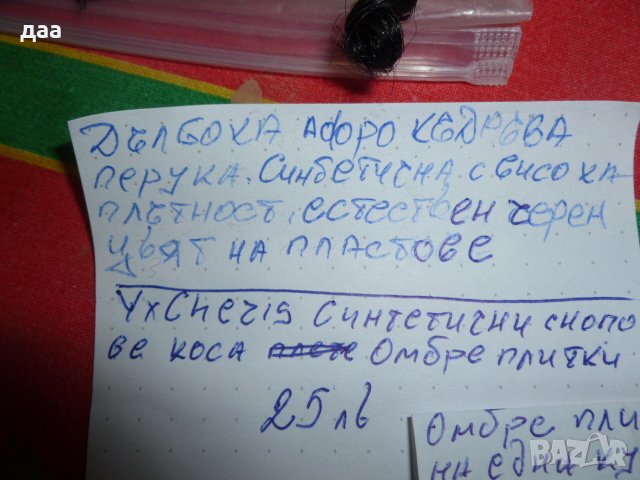 даа
Дълбока афро къдрева
перука. Синбетична с висока
плътност, естествен черен
цвят на пластове
YxCheris Синтетични снопо
ве коса омбре плитки
25 лв
омбре пли
на едни къ
BAZAR